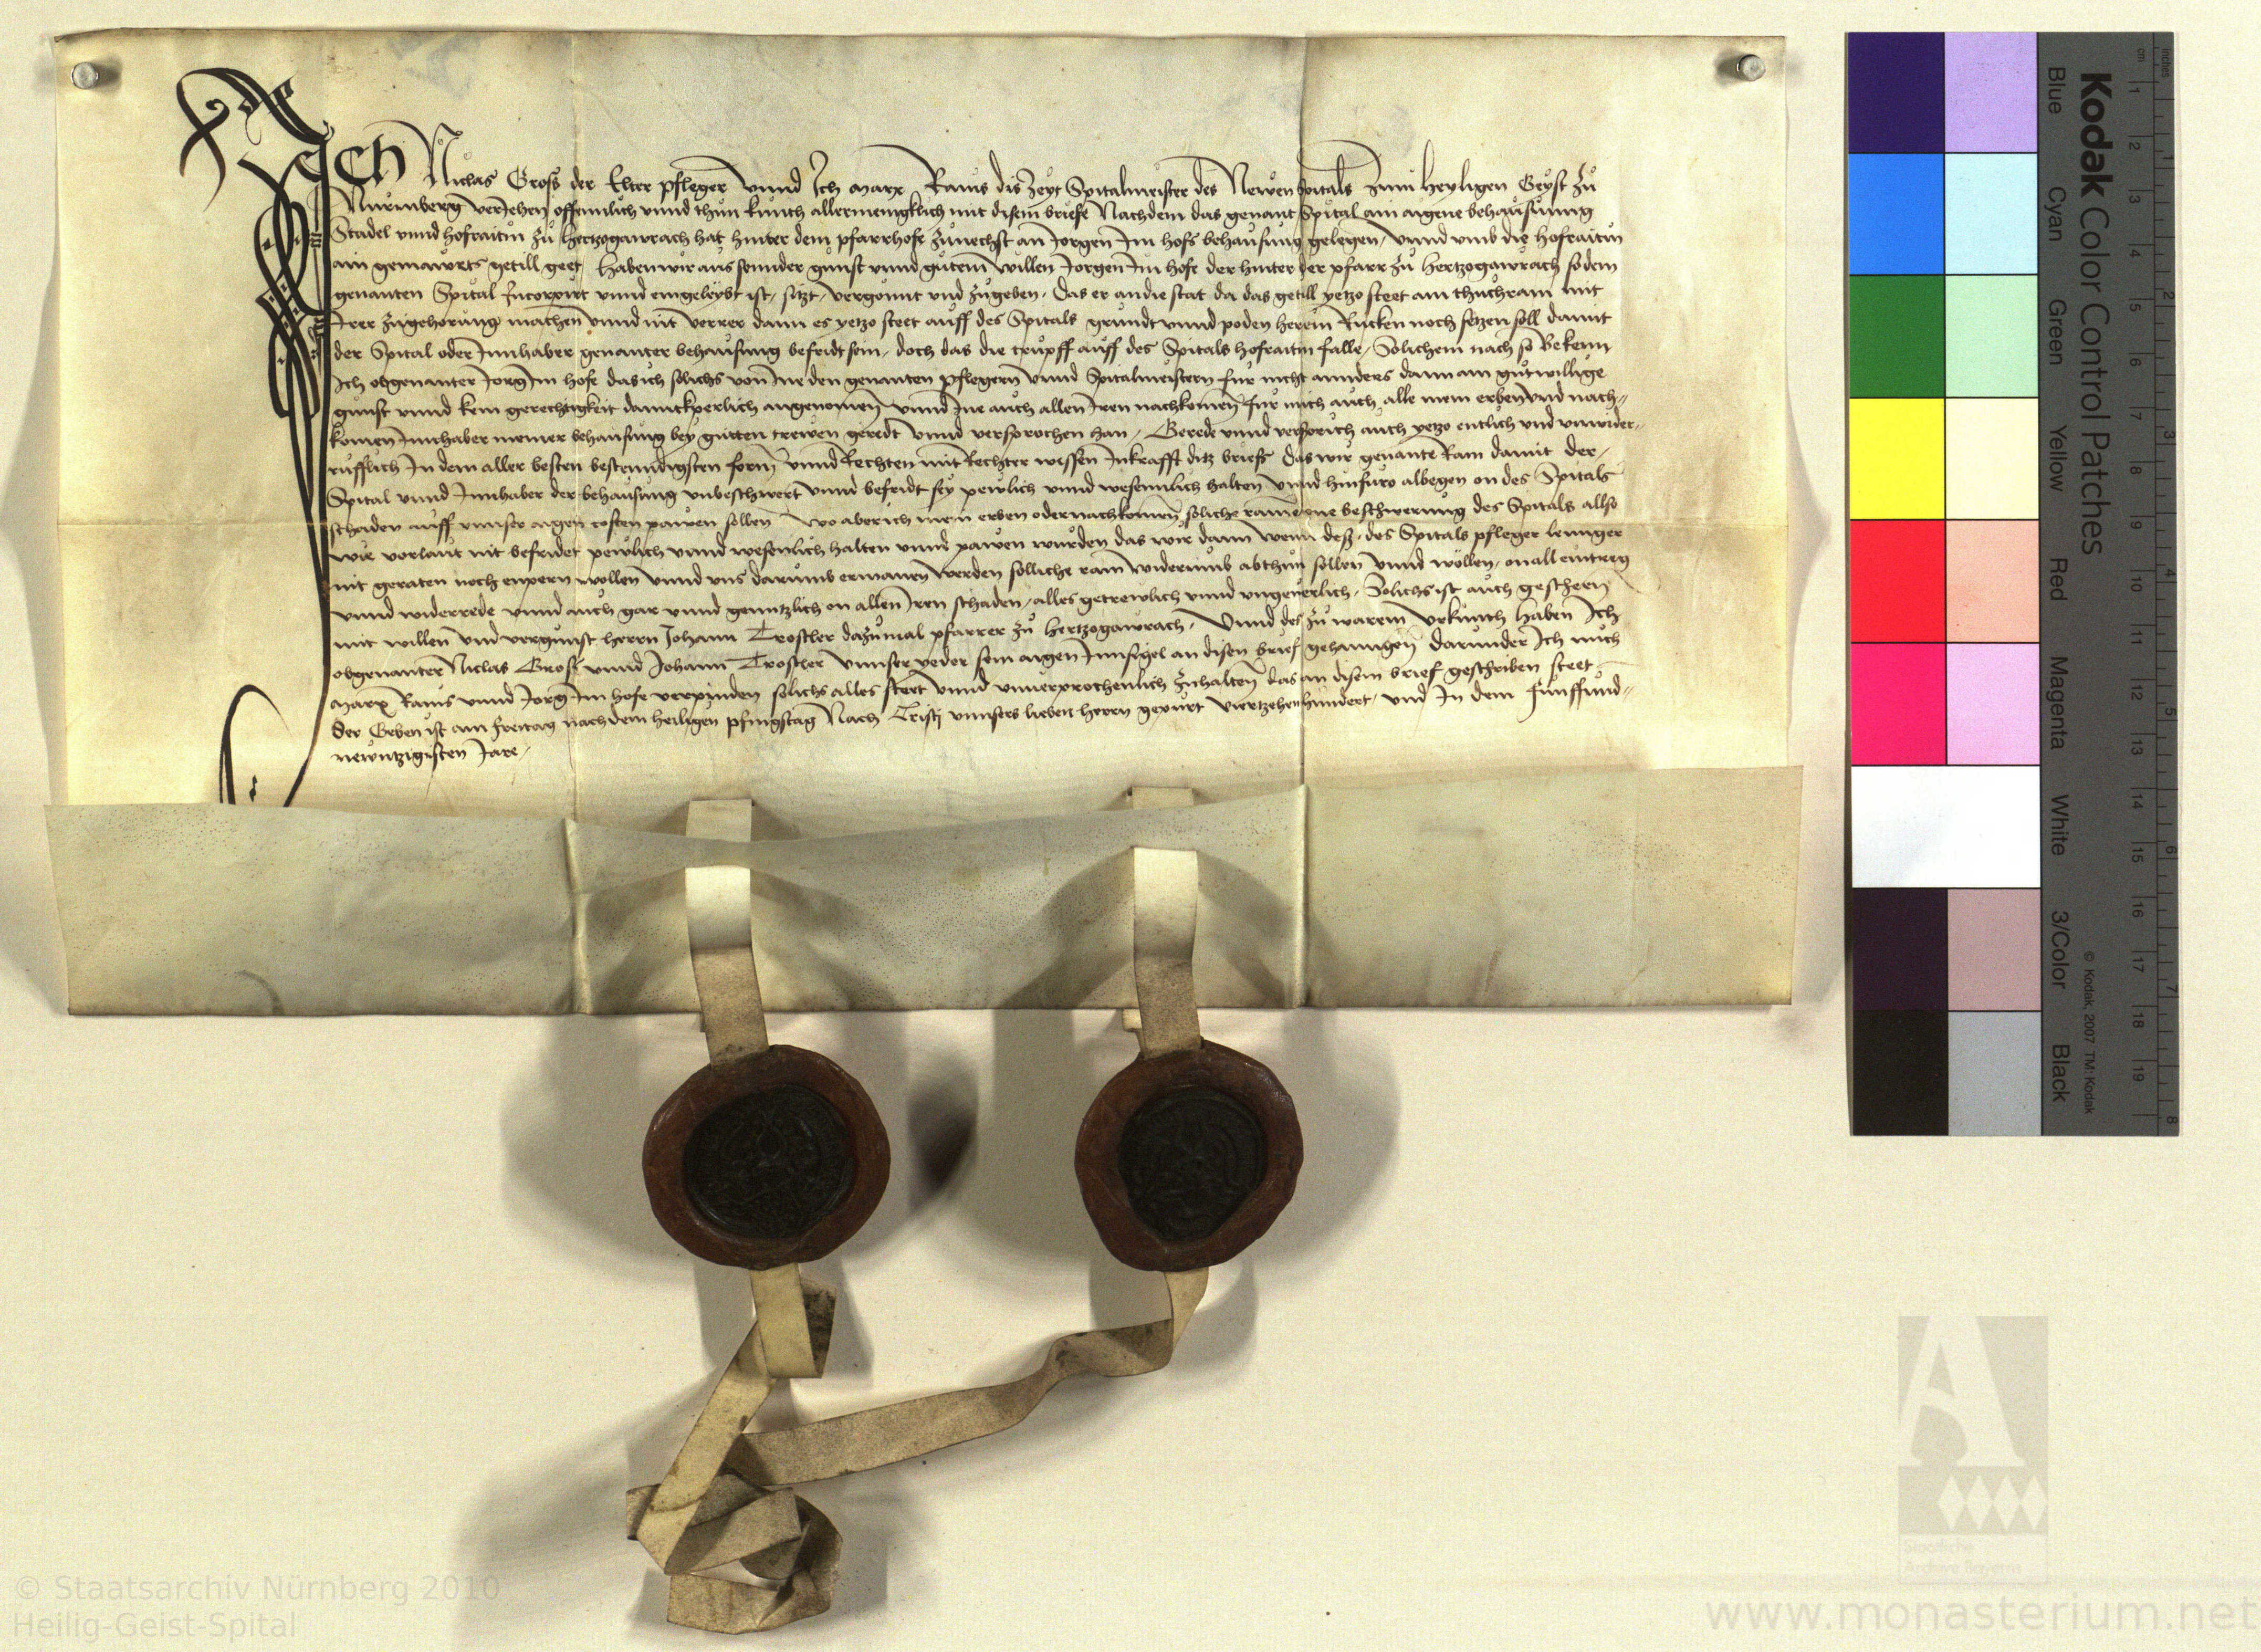 Ich Niclas Gross der Elter pfleger vnnd Ich Marx Rams diszeyt Spitalmeister des Newen spitals zum heyligen Geyst zu
Nurmberg veriehen offennlich vnnd thun kunth allermenigklich mit disem briefe Nachdem das genant Spital ain aigene behausunng
Stadel vnnd hofraitin zu Hertzogawrach hat hinter dem pfarrhofe zunechst an Jorgen Im hofs behausung gelegen, vnnd vmb die hofraitin
ain gemawrts getill geet, haben wir aus sonnder gunst vnnd gutem willen Jorgen Im hofe der hinter der pfarr zu Hertzogawrach so dem
genanten Spital Incorpirt vnnd eingeleybt ist, sitzt, vergonnt vnd zugeben, Das er an die stat da das getill yetzo steet ain thuchram mit
Irer zugehorung machen vnnd nit verrer dann es yetzo steet auff des Spitals grundt vnnd poden herein Rucken noch setzen soll damit
der Spital oder Innhaber genanter behausung befridt sein, doch das die trupff auff des Spitals hofraitin falle, Solichem nach so Beken
Ich obgenanter Jorg Im hofe das ich solichs von Ine den genanten pflegern vnnd Spitalmeistern fur nicht annders dann ain gutwillige
gunst vnnd kein gerechtigkeit danckperlich angenomen vnnd Ine auch allen Iren nachkomen fur mich auch alle mein erben vnd nach=
komen Innhaber meiner behausung bey gutten trewen geredt vnnd versprochen han, Gerede vnnd versprich auch yetzo entlich vnd vnwider=
rufflich In dem aller besten bestenndigsten form vnnd Rechten mit Rechter wissen Inkrafft ditz briefs Das wir genante Ram damit der
Spital vnnd Innhaber der behausung vnbeschwert vnnd befridt sey pewlich vnnd wesennlich halten vnnd hinfuro albegen on des Spitals
schaden auff vnnser aigen costen pawen sollen Wo aber ich mein erben oder nachkomen soliche rame one beschwerung des Spitals allso
wir vorlaut nit befridet pewlich vnnd wesenlich halten vnnd pawen wurden das wir dann wenn des des Spitals pfleger lennger
nit geraten noch enpern wollen vnnd vns darumb ermanen werden solliche ram widerumb abthun sollen vnnd wollen, on all eintreg
vnnd widerrede vnnd auch gar vnnd genntzlich on allen Iren schaden, alles getrewlich vnnd vngeuerlich, Solichs ist auch geschehen
mit willen vnd vergunst herrn Johann Trostler dazumal pfarrer zu Hertzogawrach, Vnnd des zu warem vrkunth haben Ich
obgenanter Niclas Gross vnnd Johann Trostler vnnser yeder sein aigen Innsigel an disen brief gehanngen darunder Ich mich
Marx Rams vnnd Jorg Im hofe verpinden solichs alles stett vnnd vnuerprochenlich zuhalten das an disem brief geschriben steet
Der Geben ist am freitag nach dem heiligen pfingstag Nach Cristi vnnsers lieben herrn gepurt viertzehenhundert, vnd In dem funffund=
newntzigisten Jare,
Kodak Color Control Patches
Blue Cyan Green Yellow Red Magenta White 3/Color Black
© Kodak, 2007 TM: Kodak
inches 1 2 3 4 5 6 7 8
cm 1 2 3 4 5 6 7 8 9 10 11 12 13 14 15 16 17 18 19
Staatliche
Archive Bayerns
© Staatsarchiv Nürnberg 2010
Heilig-Geist-Spital
www.monasterium.net